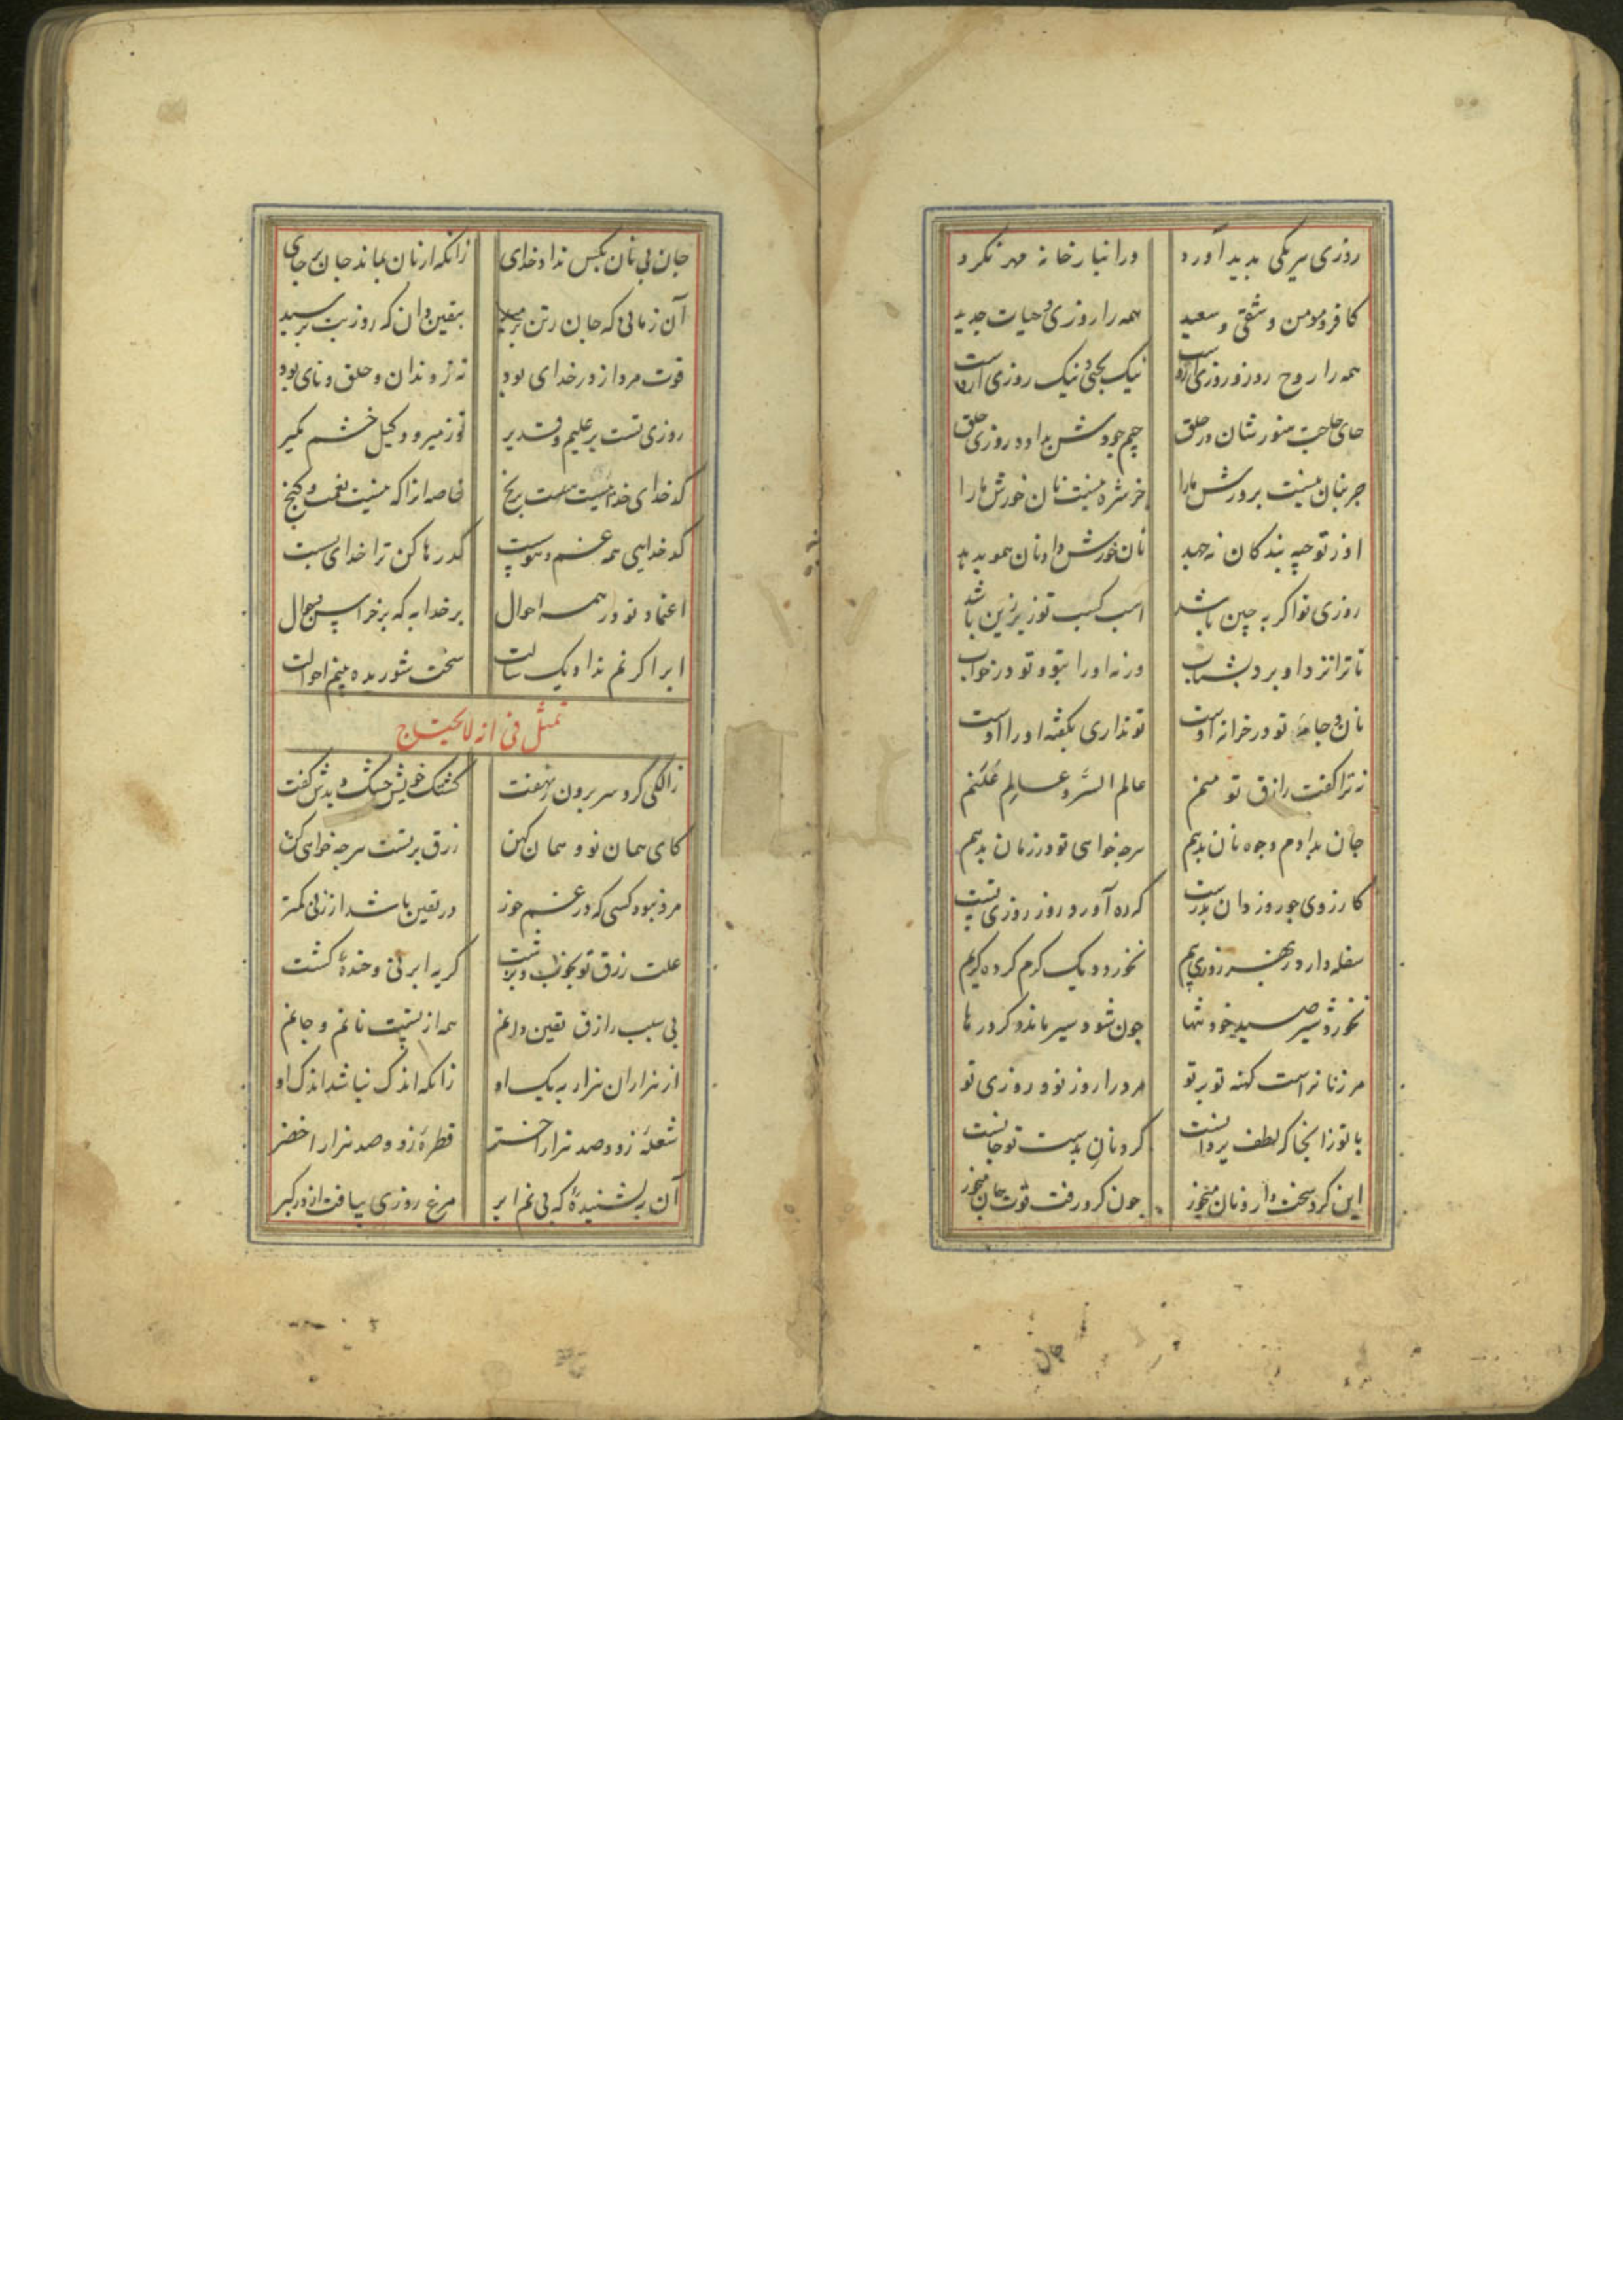 روزی هر یکی پدید آورد در انبارخانه مهر نکرد
کافر و مومن و شقی و سعید همه را روزی و حیات جدید
همه را روح و روز و روزی ازوست نیک بختی و نیک روزی ازوست
حای حاجت هنوزشان در حلق جیم جودش بداده روزی خلق
جز بنان نیست پرورش ما را جز شره نیست نان خورش ما را
او ز توجیه بندکان نه جهد نان خورش داد نان همو بدهد
روزی تو اکر به چین باشد اسب کسب تو زیر زین باشد
تا ترا نزد او برد بشتاب ورنه او را بتو و تو در خواب
نان و جامهٔ تو در خزانه اوست تو نداری بکفته او را اوست
نه ترا کفت رازق تو منم عالم السر و عالم علنم
جان بدادم وجوه نان بدهم هرچه خواهی تو در زمان بدهم
کار روزی جو روز دان بدرست که ره آورد روز روزی تست
سفله دارد ز بهر روزی بیم نخورد دیک کرم کرده کریم
نخورد شیر صید خود تنها جون شود سیر مانده کرد رها
مر زنانراست کهنه تو بر تو مرد را روز نو و روزی نو
با تو زانجا که لطف یزدانست کرو نان بدست تو جانست
این کرو سخت دار و نان میخور جون کرو رفت قوت جان میخور
جان
جان بی نان بکس نداد خدای زانکه از نان بماند جان بر جای
آن زمانی که جان ز تن برمید بیقین دان که روزیت برسید
قوت مرد از در خدای بود نه ز دندان و حلق و نای بود
روزی تست بر علیم و قدیر تو ز میر و وکیل خشم مکیر
کدخدای خدا نیست هست برنج خاصه آنرا که نیست نعمت و کنج
کدخدایی همه غم و هوس کد رها کن ترا خدای بست
اعتماد تو در همه احوال بر خدا به که بر خراس و جوال
ابر اکر نم نداد یک سالت سخت شوریده بینم احوالت
تمثل فی انه لایحتاج
زالکی کرد سر برون ز نهفت کشتک خویش خشک دید و کفت
کای همان نو و همان کهن رزق بر تست هرچه خواهی کن
مرد نبود کسی که در غم خور در یقین باشد از زنی کمتر
علت رزق تو بخوب و بزشت کریه ابر نی و خندهٔ کشت
بی سبب رازق یقین دانم همه از تست نانم و جانم
از هزاران هزار به یک او زانکه اندک نباشد اندک او
شعلهٔ زو و صد هزار اختر قطرهٔ زو و صد هزار اخضر
آن بنشنیدهٔ که بی نم ابر مرغ روزی بیافت از در کبر